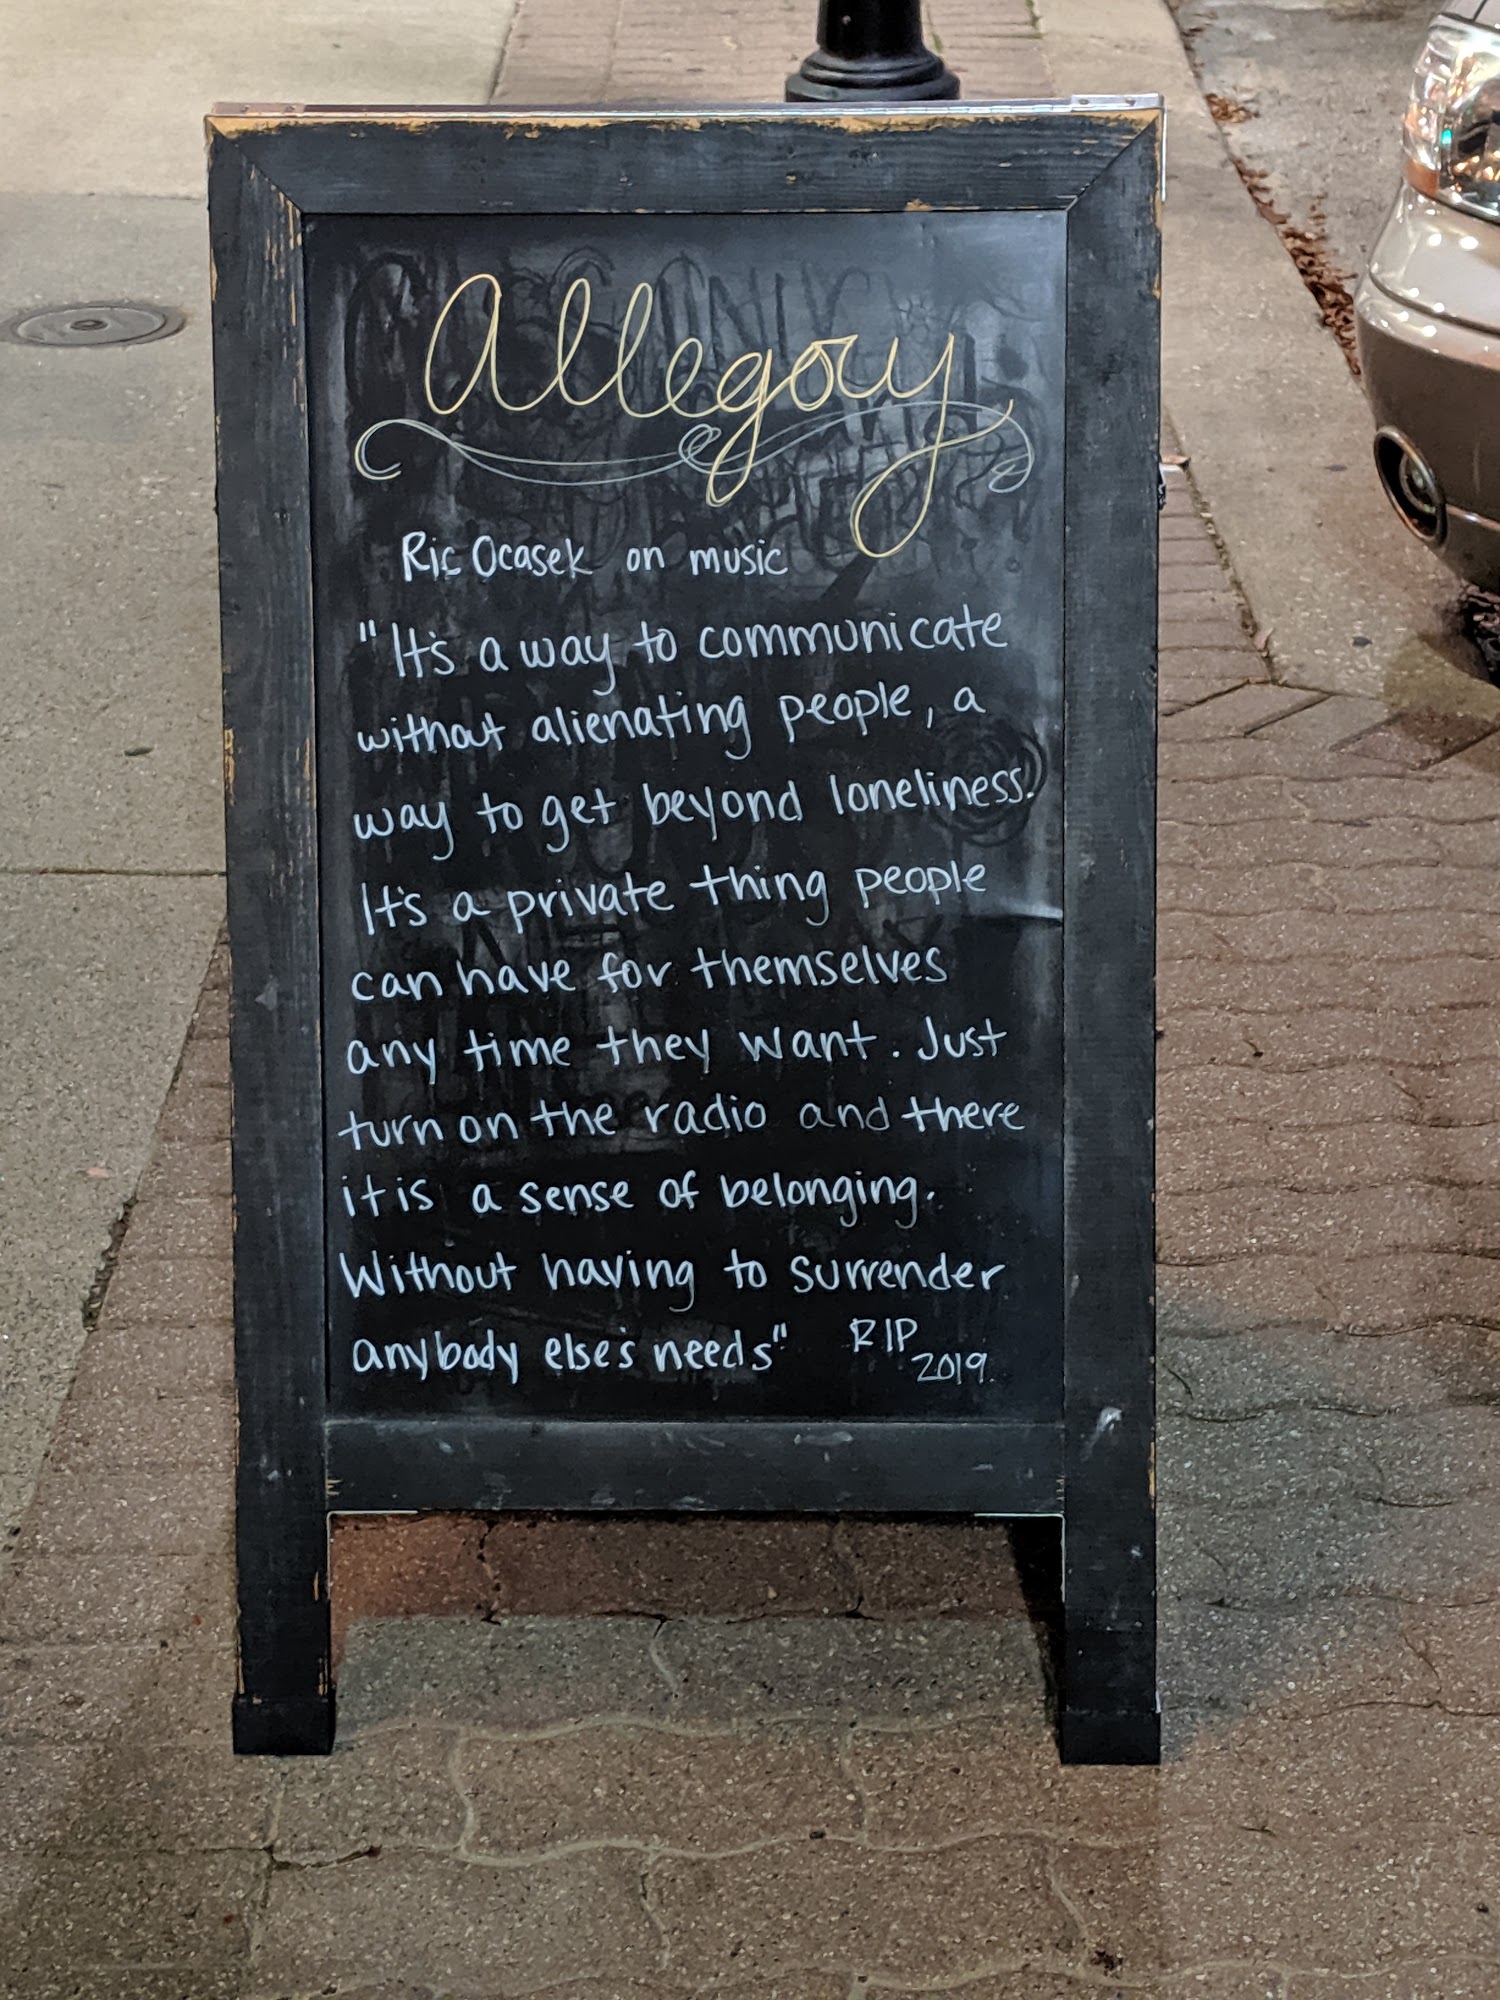 Allegory
Ric Ocasek on music
"It's a way to communicate
without alienating people, a
way to get beyond loneliness.
It's a private thing people
can have for themselves
any time they want. Just
turn on the radio and there
it is a sense of belonging.
Without having to surrender
anybody else's needs" RIP
2019.